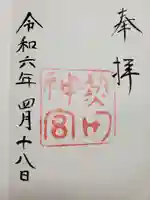 奉拝
令和六年四月十八日